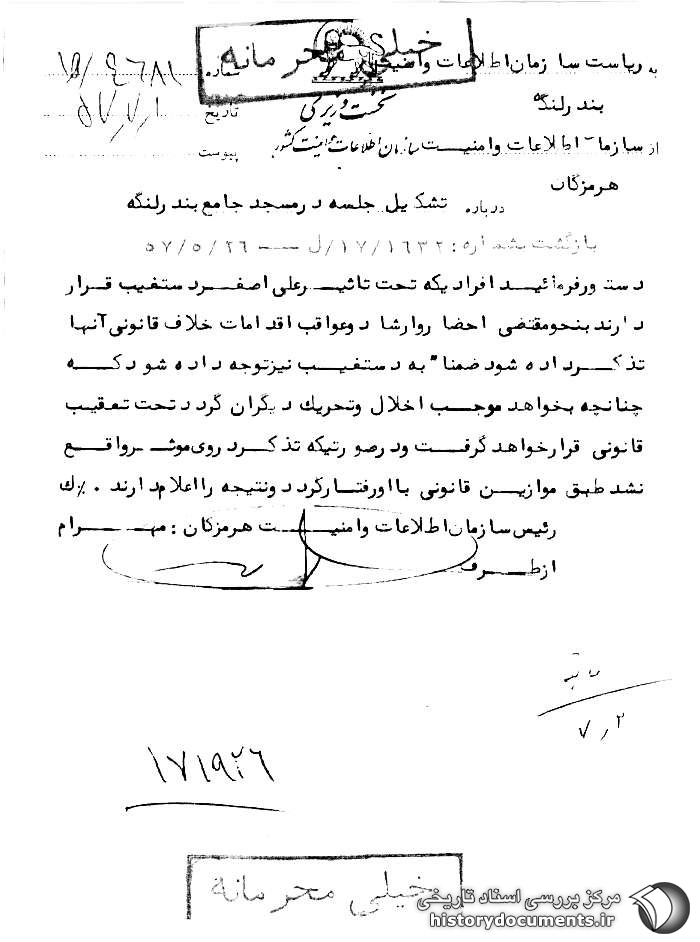 خیلی محرمانه
به ریاست سازمان اطلاعات و امنیت
شماره
بندرلنگه
نخست وزیری
تاریخ ۵۷٫۷٫۱
از سازمان اطلاعات و امنیت سازمان اطلاعات و امنیت کشور
پیوست
هرمزگان
درباره تشکیل جلسه در مسجد جامع بندرلنگه
بازگشت بشماره: ۱۷/۱۶۳۲/ل — ۵۷/۵/۲۶
دستور فرمائید افرادیکه تحت تاثیر علی اصغر دستغیب قرار
دارند بنحو مقتضی احضار وارشاد و عواقب اقدامات خلاف قانونی آنها
تذکر داده شود ضمنا" به دستغیب نیز توجه داده شود که
چنانچه بخواهد موجب اخلال وتحریك دیگران گردد تحت تعقیب
قانونی قرار خواهد گرفت ودر صورتیکه تذکر در وی موثر واقع
نشد طبق موازین قانونی با او رفتار کردد ونتیجه را اعلام دارند ۰٪ ك
رئیس سازمان اطلاعات وامنیت هرمزگان : مهرام
از طرف
۷٫۲
خیلی محرمانه
مرکز بررسی اسناد تاریخی
historydocuments.ir